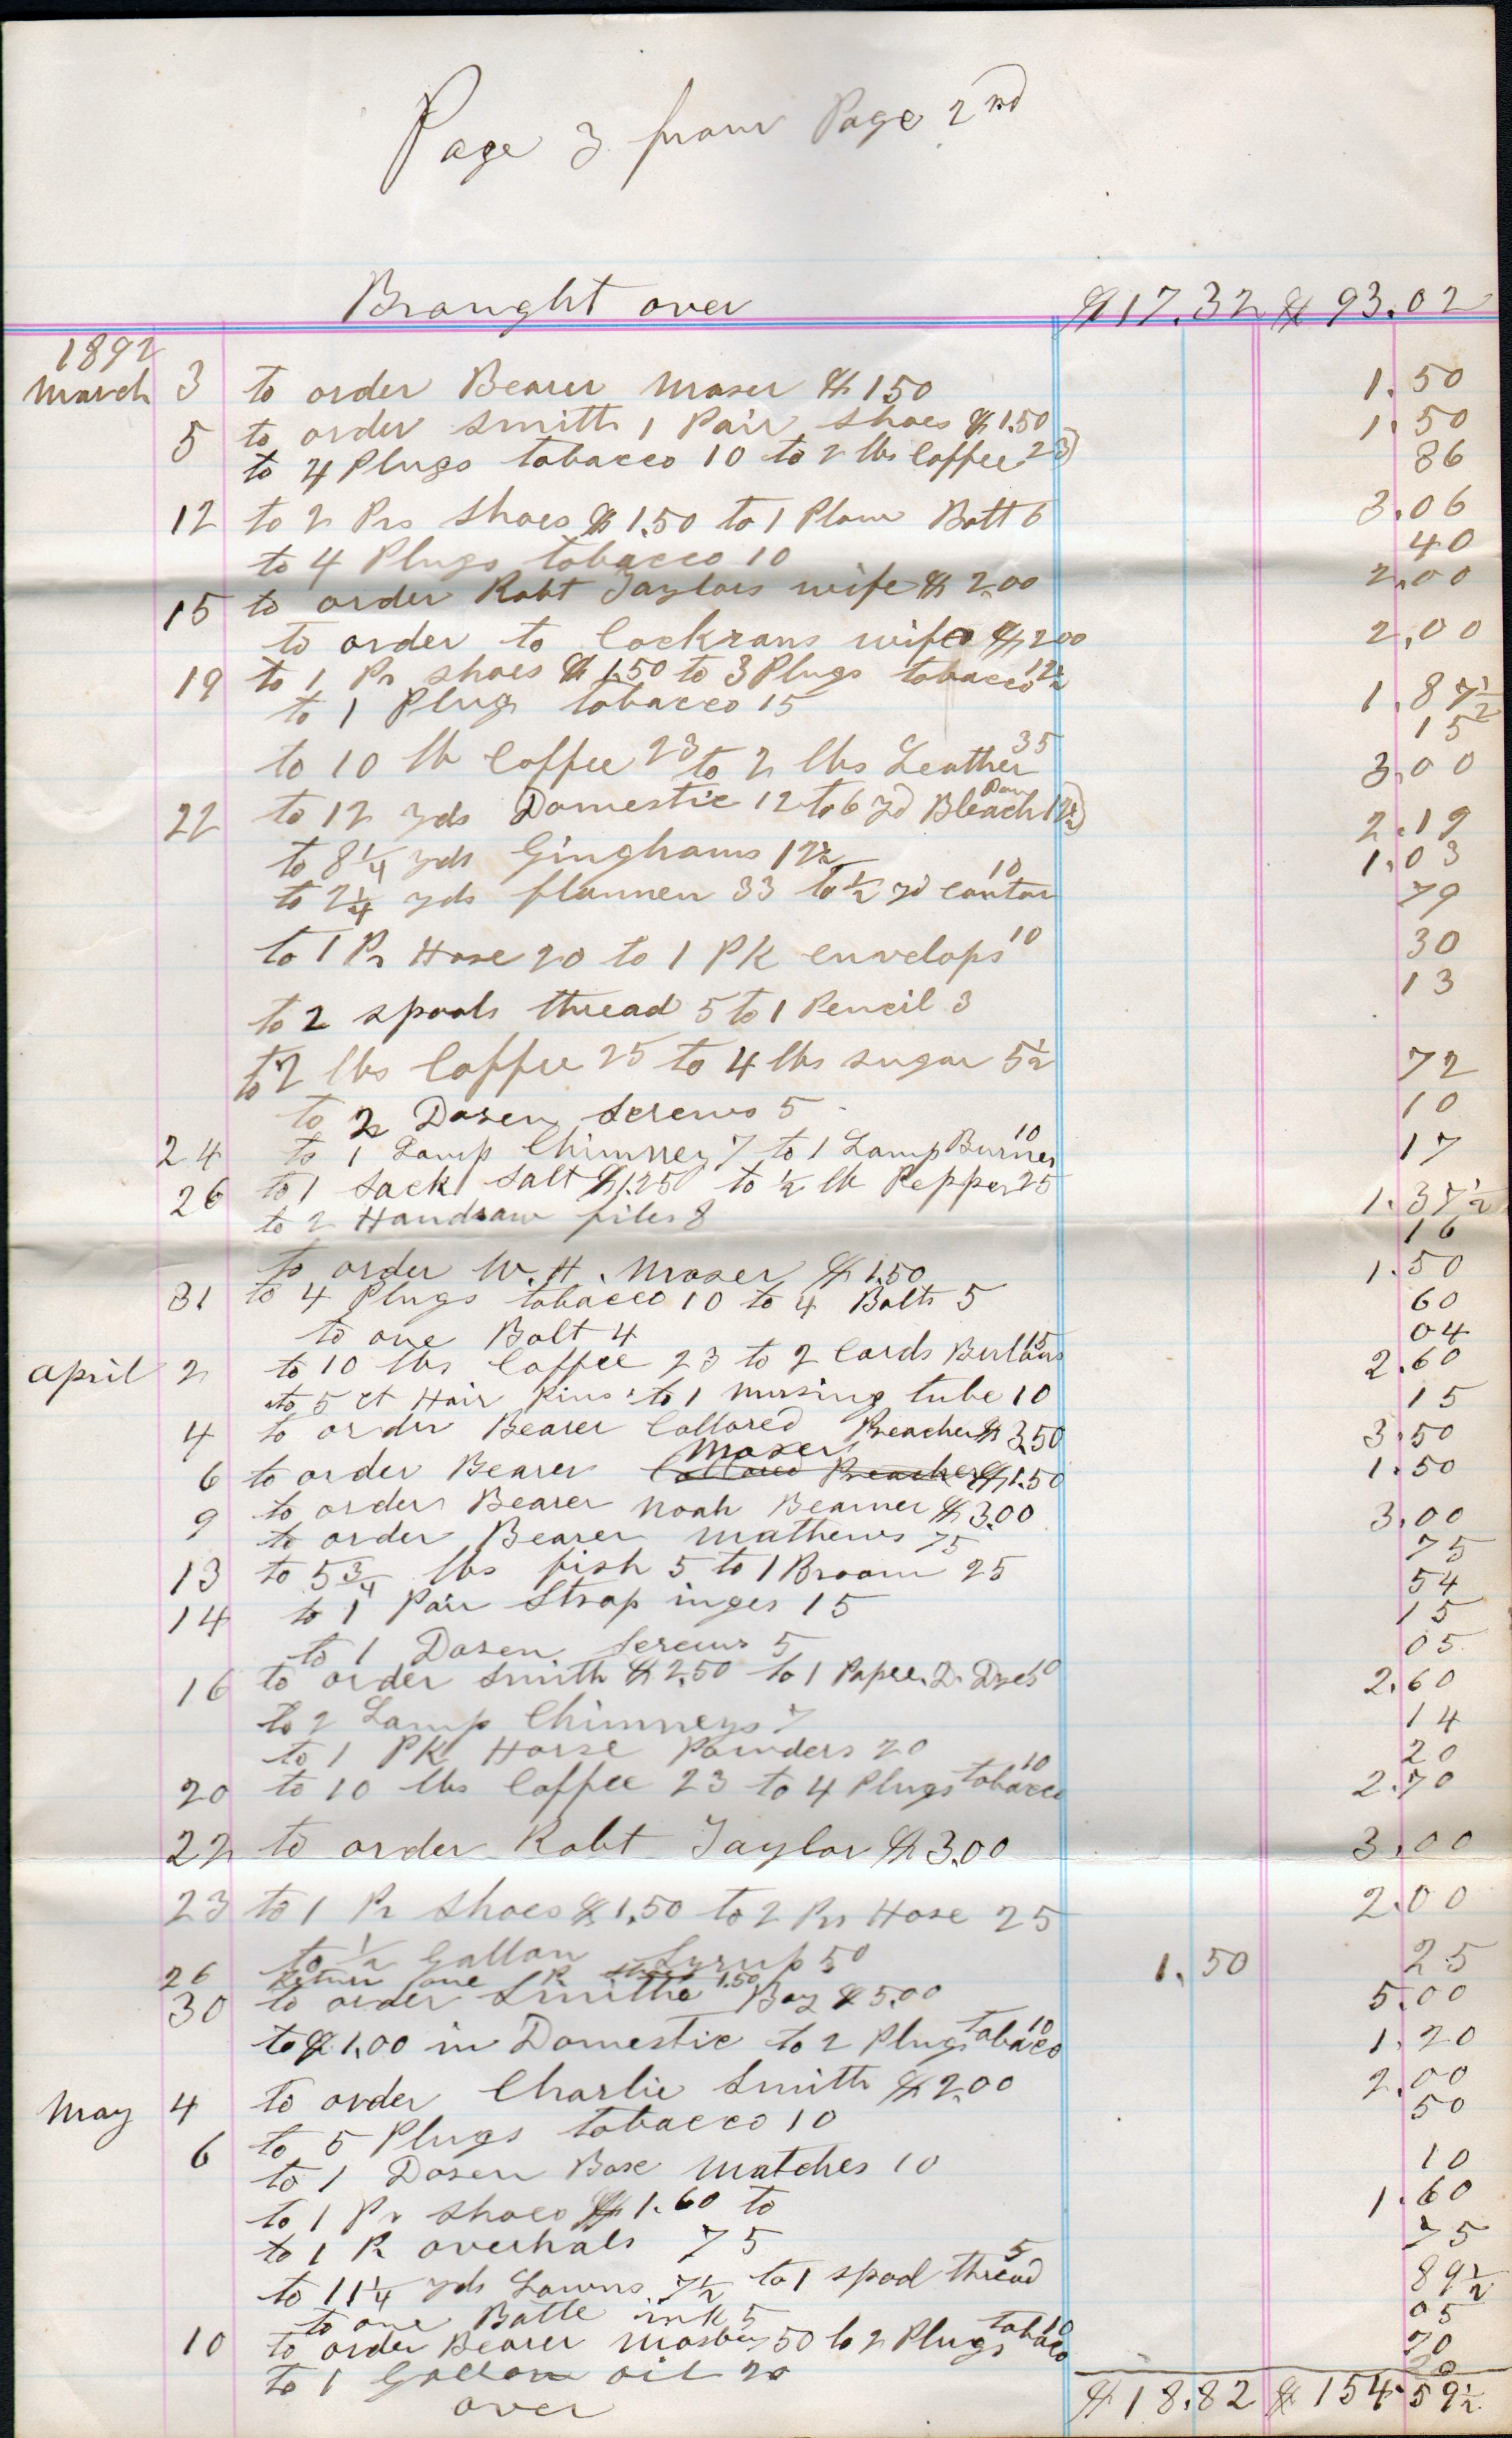 Page 3 from Page 2nd
Braught over $17.32 $93.02
1892
March 3 to order Bearer Moser $1.50 1.50
5 to order Smith 1 Pair shoes $1.50 1.50
to 4 Plugs tobacco 10 to 2 lbs Coffee 23 86
12 to 2 Prs Shoes $1.50 to 1 Plow Bolt 6 3.06
to 4 Plugs tobacco 10 40
15 to order Robt Taylors wife $2.00 2.00
to order to Cockrans wife $2.00 2.00
19 to 1 Pr shoes $1.50 to 3 Plugs tobacco 12½ 1.87½
to 1 Plug tobacco 15 15
to 10 lb Coffee 23 to 2 lbs Leather 35 3.00
22 to 12 yds Domestic 12 to 6 yd Bleach 12½ 2.19
to 8¼ yds Ginghams 12½ 1.03
to 2¼ yds flannen 33 to ½ yd canton 10 79
to 1 Pr Hose 20 to 1 PK envelops 10 30
to 2 spools thread 5 to 1 Pencil 3 13
to 2 lbs Coffee 25 to 4 lbs sugar 5½ 72
to 2 Dozen Screws 5 10
24 to 1 Lamp Chimney 7 to 1 Lamp Burner 10 17
26 to 1 Sack Salt $1.25 to ½ lb Pepper 25 1.37½
to 2 Handsaw files 8 16
to order W. H. Moser $1.50 1.50
31 to 4 Plugs tobacco 10 to 4 Bolts 5 60
to one Bolt 4 04
April 2 to 10 lbs Coffee 23 to 2 Cards Buttons 15 2.60
to 5 ct Hair Pins to 1 nursing tube 10 15
4 to order Bearer Collored Preacher $3.50 3.50
Moser
6 to order Bearer Collored Preacher $1.50 1.50
9 to order Bearer Noah Beamer $3.00 3.00
to order Bearer Mathews 75 75
13 to 5¾ lbs fish 5 to 1 Broom 25 54
14 to 1 Pair Strap inges 15 15
to 1 Dozen Screws 5 05
16 to order Smith $2.50 to 1 Paper D. Dyes 10 2.60
to 2 Lamp Chimneys 7 14
to 1 PK Horse Pouders 20 20
20 to 10 lbs Coffee 23 to 4 Plugs tobacco 10 2.70
22 to order Robt Taylor $3.00 3.00
23 to 1 Pr Shoes $1.50 to 2 Prs Hose 25 2.00
to ½ Gallon Syrup 50 25
26 Return one Pr shoes 1.50 1.50
30 to order Smiths Boy $5.00 5.00
to $1.00 in Domestic to 2 Plugs tobaco 10 1.20
May 4 to order Charlie Smith $2.00 2.00
6 to 5 Plugs tobacco 10 50
to 1 Dozen Box Matches 10 10
to 1 Pr Shoes $1.60 to 1.60
to 1 Pr overhals 75 75
to 11¼ yds Lawns 7½ to 1 spool thread 5 89½
to one Botle ink 5 05
10 to order Bearer Mosbey 50 to 2 Plugs tobaco 10 70
to 1 Gallon oil 20 20
over $18.82 $154.59½